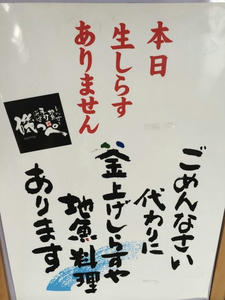 本日
生しらす
ありません
ごめんなさい
代わりに
釜上げしらすや
地魚料理
あります